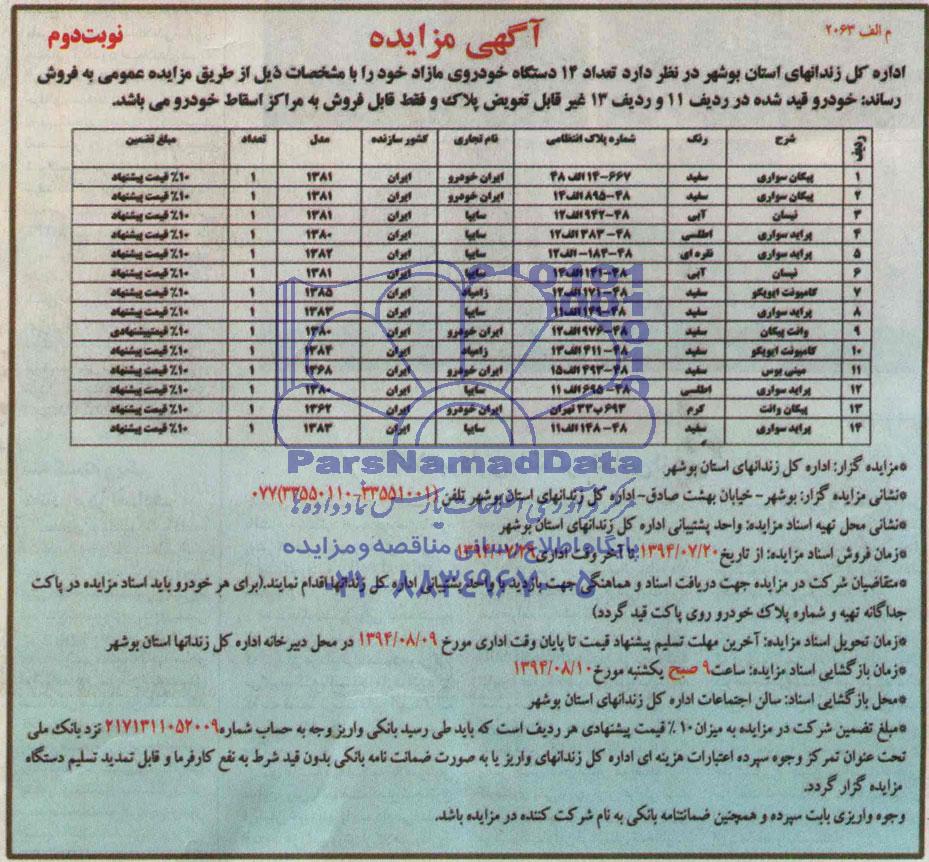 م الف ۲۰۶۳
آگهی مزایده
نوبت دوم
اداره کل زندانهای استان بوشهر در نظر دارد تعداد ۱۴ دستگاه خودروی مازاد خود را با مشخصات ذیل از طریق مزایده عمومی به فروش
رساند: خودرو قید شده در ردیف ۱۱ و ردیف ۱۳ غیر قابل تعویض پلاک و فقط قابل فروش به مراکز اسقاط خودرو می باشد.
ردیف شرح رنگ شماره پلاک انتظامی نام تجاری کشور سازنده مدل تعداد مبلغ تضمین
۱ پیکان سواری سفید ۶۶۷-۱۴ الف ۴۸ ایران خودرو ایران ۱۳۸۱ ۱ ۱۰٪ قیمت پیشنهاد
۲ پیکان سواری سفید ۴۸-۸۹۵ الف ۱۴ ایران خودرو ایران ۱۳۸۱ ۱ ۱۰٪ قیمت پیشنهاد
۳ نیسان آبی ۴۸-۹۴۲ الف ۱۲ سایپا ایران ۱۳۸۱ ۱ ۱۰٪ قیمت پیشنهاد
۴ پراید سواری اطلسی ۴۸-۳۸۳ الف ۱۲ سایپا ایران ۱۳۸۰ ۱ ۱۰٪ قیمت پیشنهاد
۵ پراید سواری نقره ای ۴۸-۱۸۳- الف ۱۲ سایپا ایران ۱۳۸۲ ۱ ۱۰٪ قیمت پیشنهاد
۶ نیسان آبی ۴۸-۱۴۱ الف ۱۴ سایپا ایران ۱۳۸۱ ۱ ۱۰٪ قیمت پیشنهاد
۷ کامیونت ایویکو سفید ۴۸-۱۷۱ الف ۱۲ زامیاد ایران ۱۳۸۵ ۱ ۱۰٪ قیمت پیشنهاد
۸ پراید سواری سفید ۴۸-۱۴۹ الف ۱۱ سایپا ایران ۱۳۸۳ ۱ ۱۰٪ قیمت پیشنهاد
۹ وانت پیکان سفید ۴۸-۹۷۶ الف ۱۲ ایران خودرو ایران ۱۳۸۰ ۱ ۱۰٪ قیمتپیشنهادی
۱۰ کامیونت ایویکو سفید ۴۸-۴۱۱ الف ۱۳ زامیاد ایران ۱۳۸۴ ۱ ۱۰٪ قیمت پیشنهاد
۱۱ مینی بوس سفید ۴۸-۴۹۳ الف ۱۵ ایران خودرو ایران ۱۳۶۸ ۱ ۱۰٪ قیمت پیشنهاد
۱۲ پراید سواری اطلسی ۴۸-۶۹۵ الف ۱۱ سایپا ایران ۱۳۸۰ ۱ ۱۰٪ قیمت پیشنهاد
۱۳ پیکان وانت کرم ۶۹۳ ب ۳۳ تهران ایران خودرو ایران ۱۳۶۲ ۱ ۱۰٪ قیمت پیشنهاد
۱۴ پراید سواری سفید ۴۸-۱۴۸ الف ۱۱ سایپا ایران ۱۳۸۳ ۱ ۱۰٪ قیمت پیشنهاد
ParsNamadData
*مزایده گزار: اداره کل زندانهای استان بوشهر
*نشانی مزایده گزار: بوشهر- خیابان بهشت صادق- اداره کل زندانهای استان بوشهر تلفن (۳۳۵۵۱۰۰۱-۳۳۵۵۰۱۱۰)۰۷۷
*نشانی محل تهیه اسناد مزایده: واحد پشتیبانی اداره کل زندانهای استان بوشهر
پایگاه اطلاع رسانی مناقصه و مزایده
*زمان فروش اسناد مزایده: از تاریخ ۱۳۹۴/۰۷/۲۰ تا آخر وقت اداری
۰۲۱-۸۸۳۴۹۶۷۰-۵
*متقاضیان شرکت در مزایده جهت دریافت اسناد و هماهنگی جهت بازدید با واحد پشتیبانی اداره کل زندانها اقدام نمایند.(برای هر خودرو باید اسناد مزایده در پاکت
جداگانه تهیه و شماره پلاک خودرو روی پاکت قید گردد)
*زمان تحویل اسناد مزایده: آخرین مهلت تسلیم پیشنهاد قیمت تا پایان وقت اداری مورخ ۱۳۹۴/۰۸/۰۹ در محل دبیرخانه اداره کل زندانها استان بوشهر
*زمان بازگشایی اسناد مزایده: ساعت ۹ صبح یکشنبه مورخ ۱۳۹۴/۰۸/۱۰
*محل بازگشایی اسناد: سالن اجتماعات اداره کل زندانهای استان بوشهر
*مبلغ تضمین شرکت در مزایده به میزان ۱۰٪ قیمت پیشنهادی هر ردیف است که باید طی رسید بانکی واریز وجه به حساب شماره ۲۱۷۱۳۱۱۰۵۲۰۰۹ نزد بانک ملی
تحت عنوان تمرکز وجوه سپرده اعتبارات هزینه ای اداره کل زندانهای واریز یا به صورت ضمانت نامه بانکی بدون قید شرط به نفع کارفرما و قابل تمدید تسلیم دستگاه
مزایده گزار گردد.
وجوه واریزی بابت سپرده و همچنین ضمانتنامه بانکی به نام شرکت کننده در مزایده باشد.